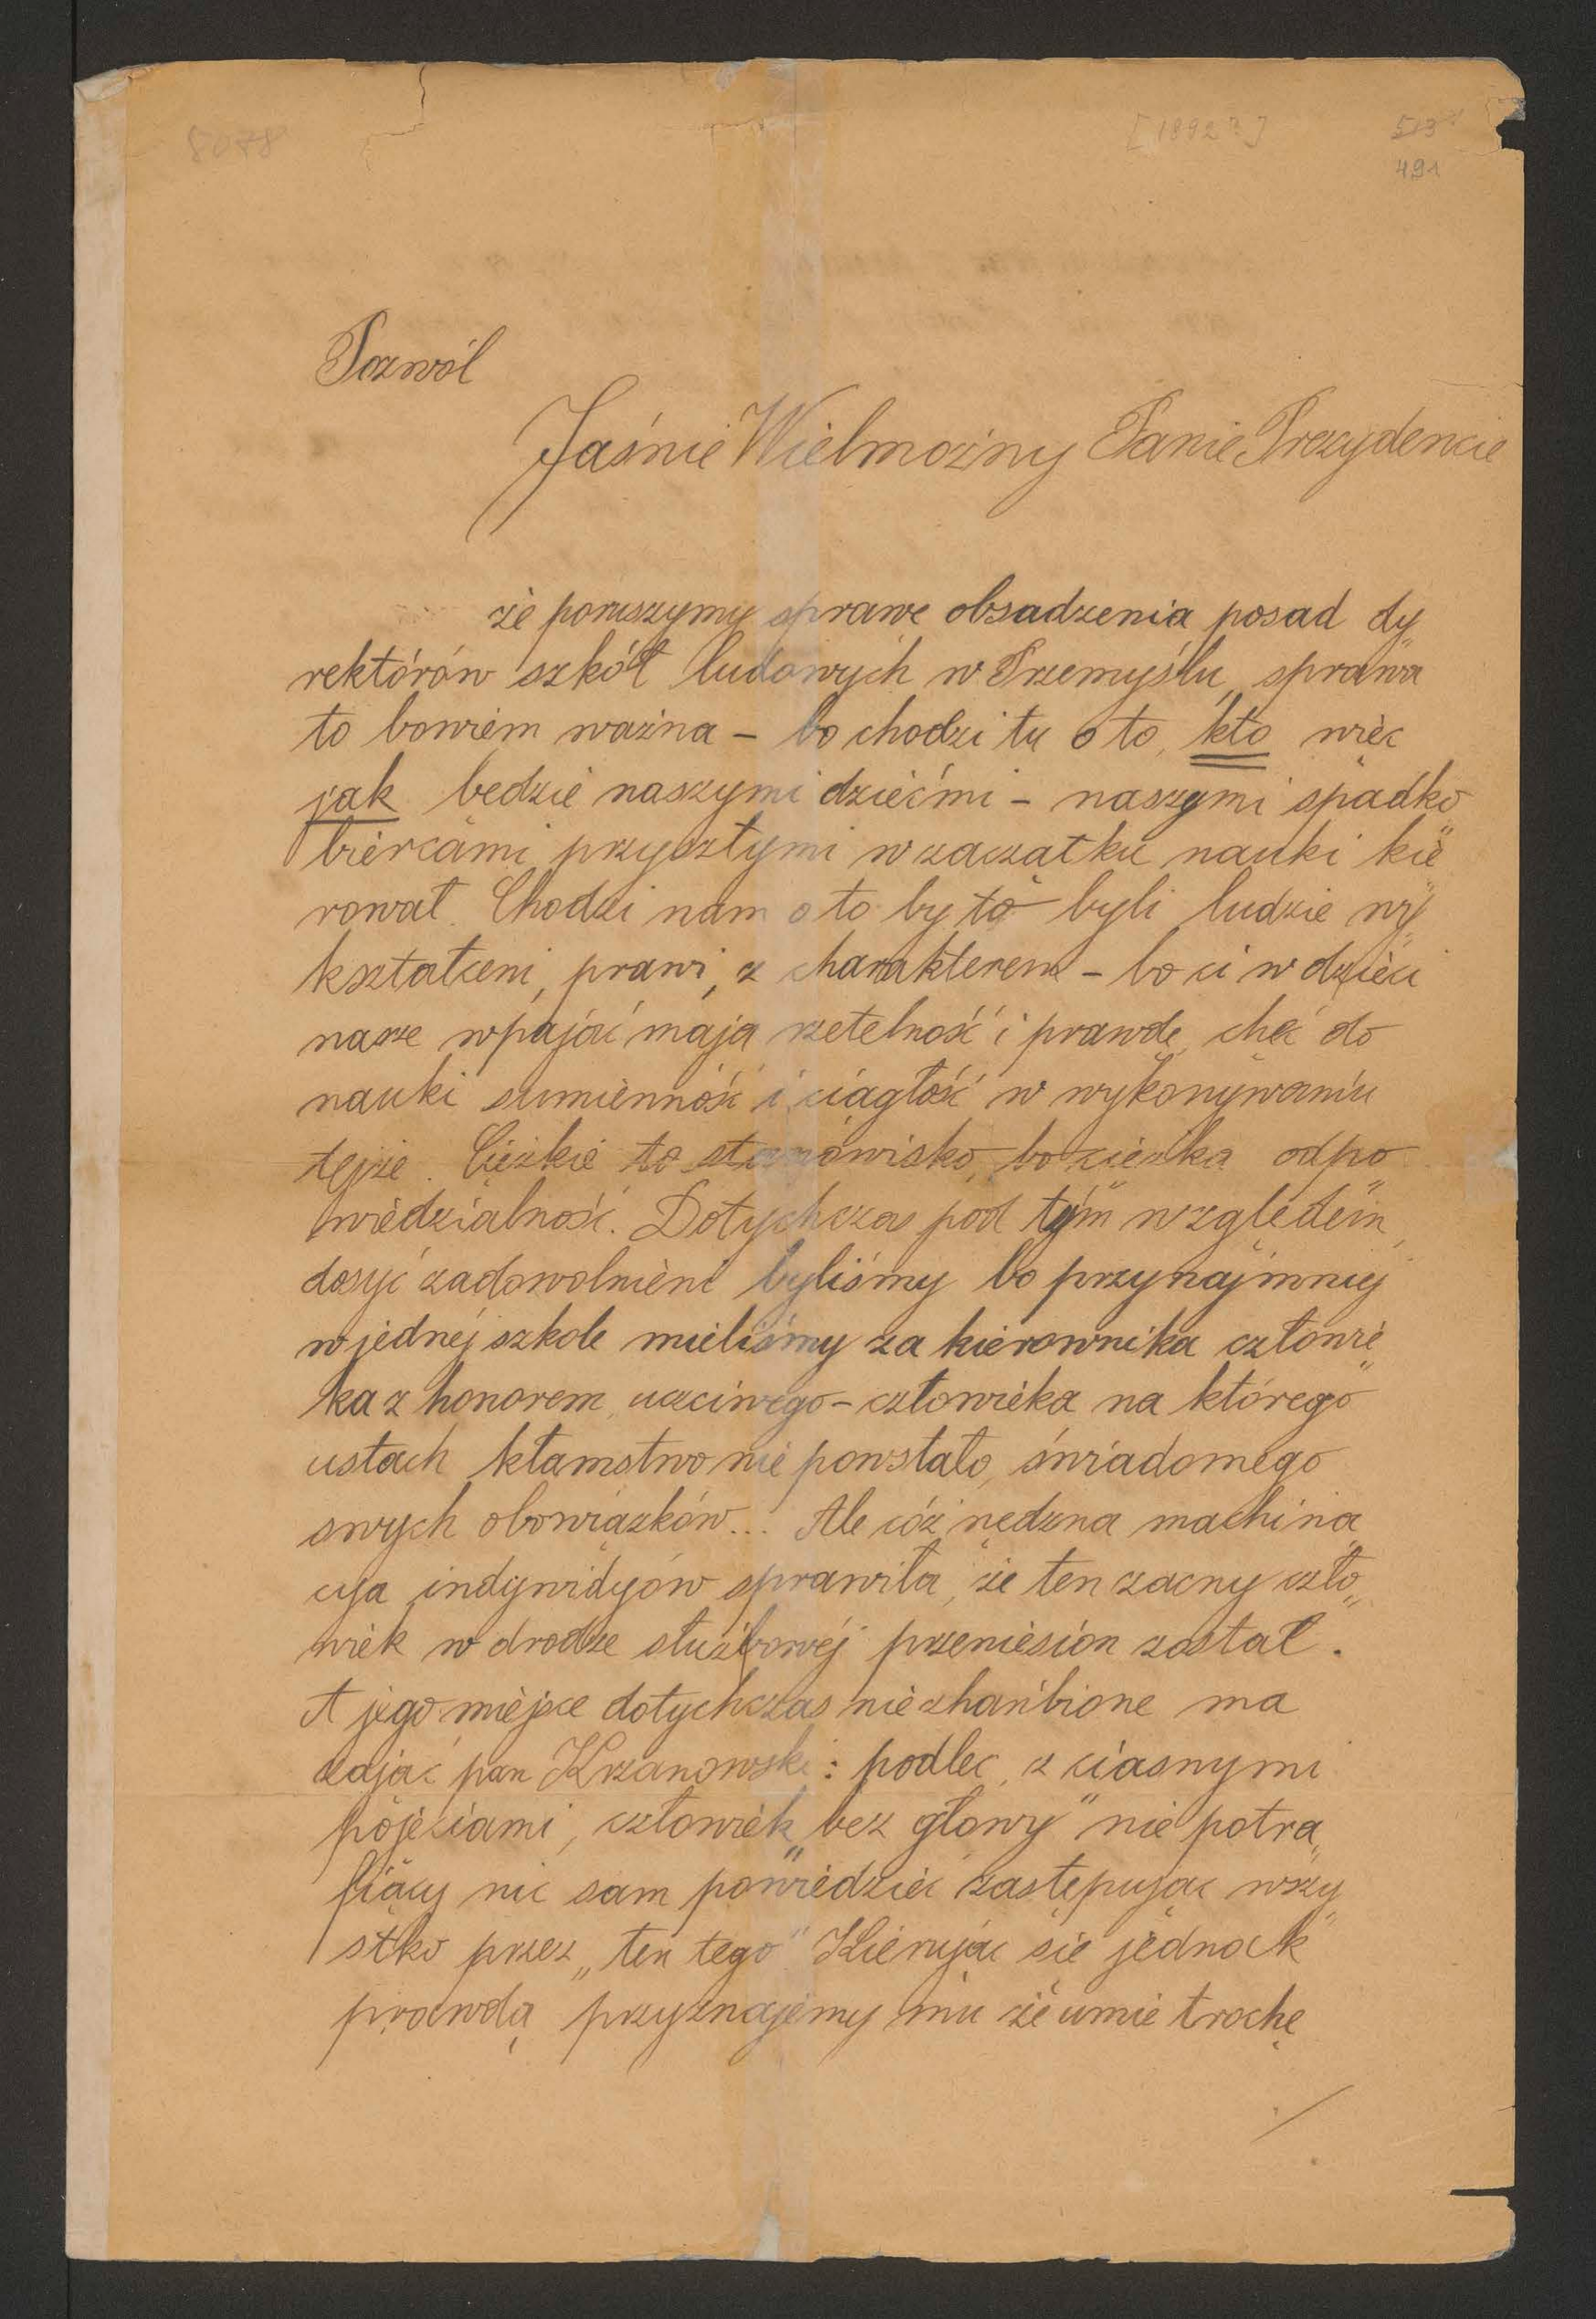 8078 [1892?] 513
491
Pozwól
Jaśnie Wielmożny Panie Prezydencie
że poruszymy sprawę obsadzenia posad dy„
rektórów szkół ludowych w Przemyślu, sprawa
to bowiem ważna – bo chodzi tu o to, kto więc
jak będzie naszymi dziećmi – naszymi spadko„
biercami przyszłymi w zaczątku nauki kie„
rował. Chodzi nam o to by to byli ludzie wy„
kształceni, prawi, z charakterem – bo ci w dzieci
nasze wpajać mają rzetelność i prawdę, chęć do
nauki sumienność i ciągłość w wykonywaniu
tejże. Ciężkie to stanowisko, bo ciężka odpo„
wiedzialność. Dotychczas pod tym względem,
dosyć zadowolnieni byliśmy bo przynajmniej
w jednej szkole mieliśmy za kierownika człowie„
ka z honorem, uczciwego – człowieka na którego
ustach kłamstwo nie powstało, świadomego
swych obowiązków... Ale cóż nędzna machina„
cya indywidyów sprawiła, że ten zacny czło„
wiek w drodze służbowej przeniesion został.
A jego miejsce dotychczas niezhańbione ma
zająć pan Krzanowski: podlec, z ciasnymi
pojęciami, człowiek „bez głowy" nie potra„
fiący nic sam powiedzieć zastępując wszy„
stko przez „ten tego" Kierując się jednak
prawdą przyznajemy mu że umie trochę